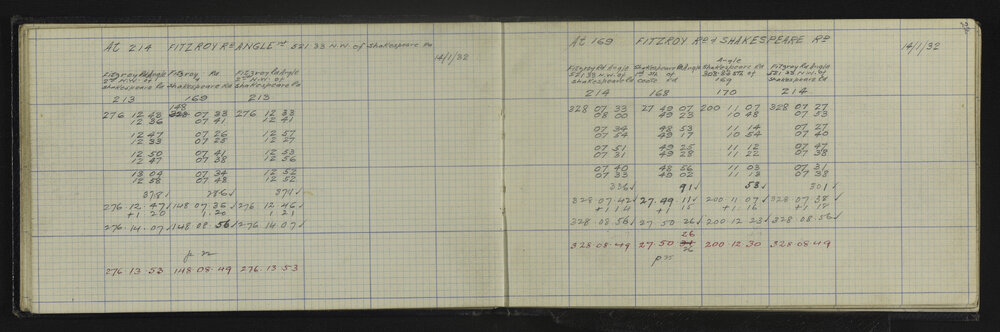 At 214 FITZROY RD ANGLE 1st 521.33 N.W. of Shakespeare Rd
14/1/32
Fitzroy Rd Angle Fitzroy Fitzroy Rd Angle
2nd N.W. of & 2nd N.W. of
Shakespeare Rd Shakespeare Rd Shakespeare Rd
213 169 213
148
276 12 43 328 07 33 276 12 33
12 36 07 41 12 41
12 47 07 26 12 57
12 33 07 25 12 27
12 50 07 41 12 53
12 47 07 38 12 56
13 04 07 34 12 52
12 58 07 48 12 52
378√ 286√ 371√
276 12.47√ 148 07 36√ 276 12 46√
+1 20 1.20 1 21
276 14.07√ 148 08 56√ 276 14 07√
pn
276 13.53 148 08.49 276.13.53
At 169 FITZROY RD & SHAKESPEARE RD
14/1/32
Angle
Fitzroy Rd Angle Shakespeare Rd Angle Shakespeare Rd Fitzroy Rd Angle
521.33 N.W. of 1st Sth of 303.83 Sth of 521.33 N.W. of
Shakespeare Rd Coate Rd 169 Shakespeare Rd
214 168 170 214
328 07 33 27 49 07 200 11 07 328 07 27
08 00 49 23 10 48 07 53
07 34 48 53 11 14 07 27
07 54 49 17 10 54 07 40
07 51 49 25 11 12 07 47
07 31 49 28 11 22 07 38
07 40 48 56 11 03 07 31
07 33 49 02 11 13 07 38
336√ 91√ 53√ 301√
328 07.42√ 27.49 11√ 200 11 07√ 328 07 38√
+1 14 1 15 + 1 16 +1 18
328 08.56√ 27 50 26√ 200 12 23√ 328 08.56√
26
328.08.49 27.50 200.12.30 328.08.49
26
pn